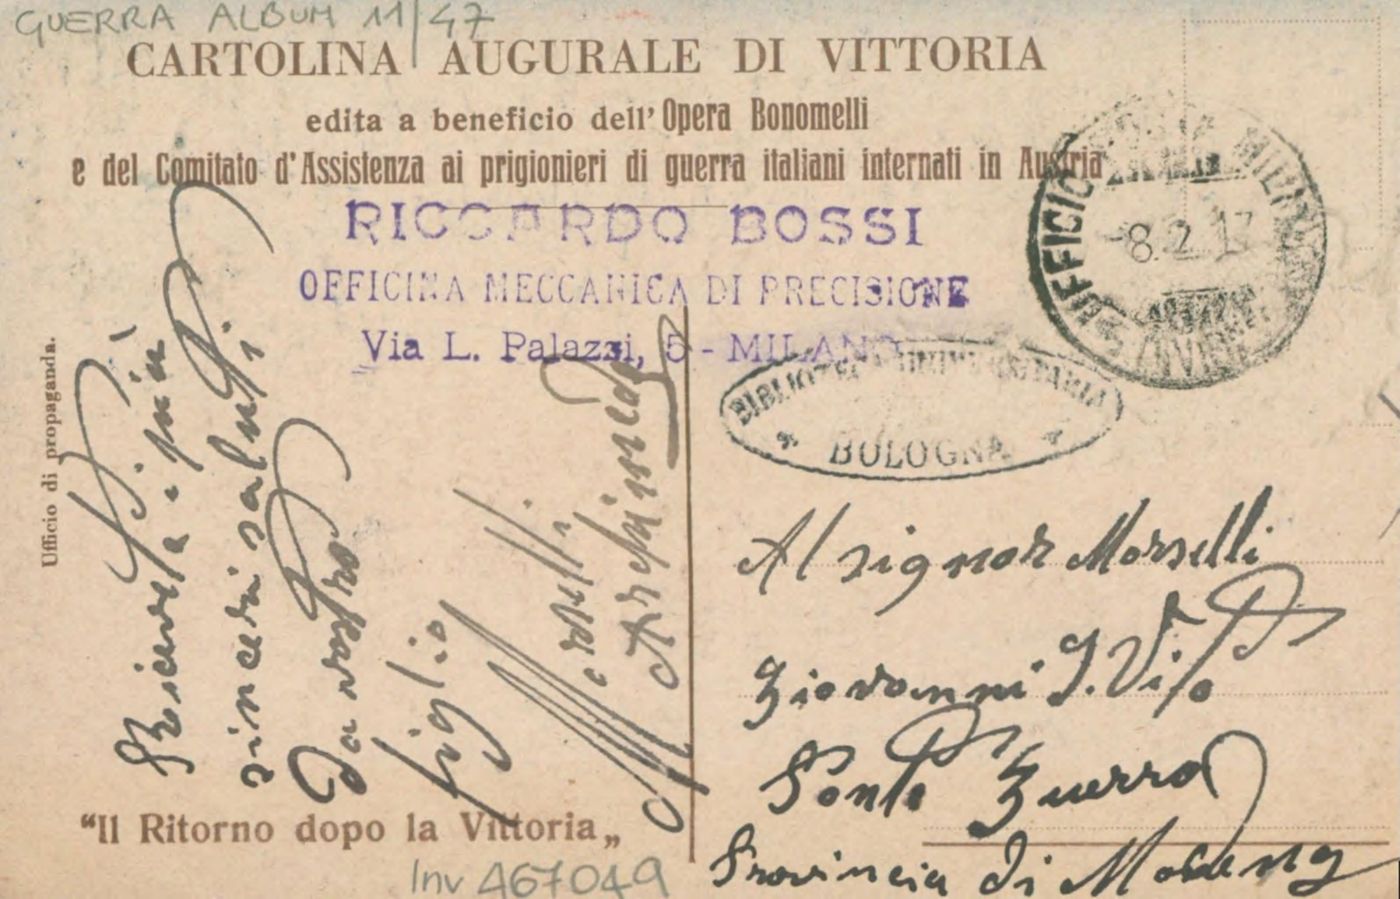 GUERRA ALBUM 11/47
CARTOLINA AUGURALE DI VITTORIA
edita a beneficio dell' Opera Bonomelli
e del Comitato d'Assistenza ai prigionieri di guerra italiani internati in Austria
RICCARDO BOSSI
OFFICINA MECCANICA DI PRECISIONE
Via L. Palazzi, 5 - MILANO
UFFICIO POSTA MILITARE
8.2.17
BIBLIOTECA UNIVERSITARIA
BOLOGNA
Ufficio di propaganda.
Ricevete i più
sinceri saluti
da vostro
figlio
Morselli
Archimede
Al signor Morselli
Giovanni S. Vito
Ponte Guerro
Provincia di Modena
"Il Ritorno dopo la Vittoria„
Inv 467049